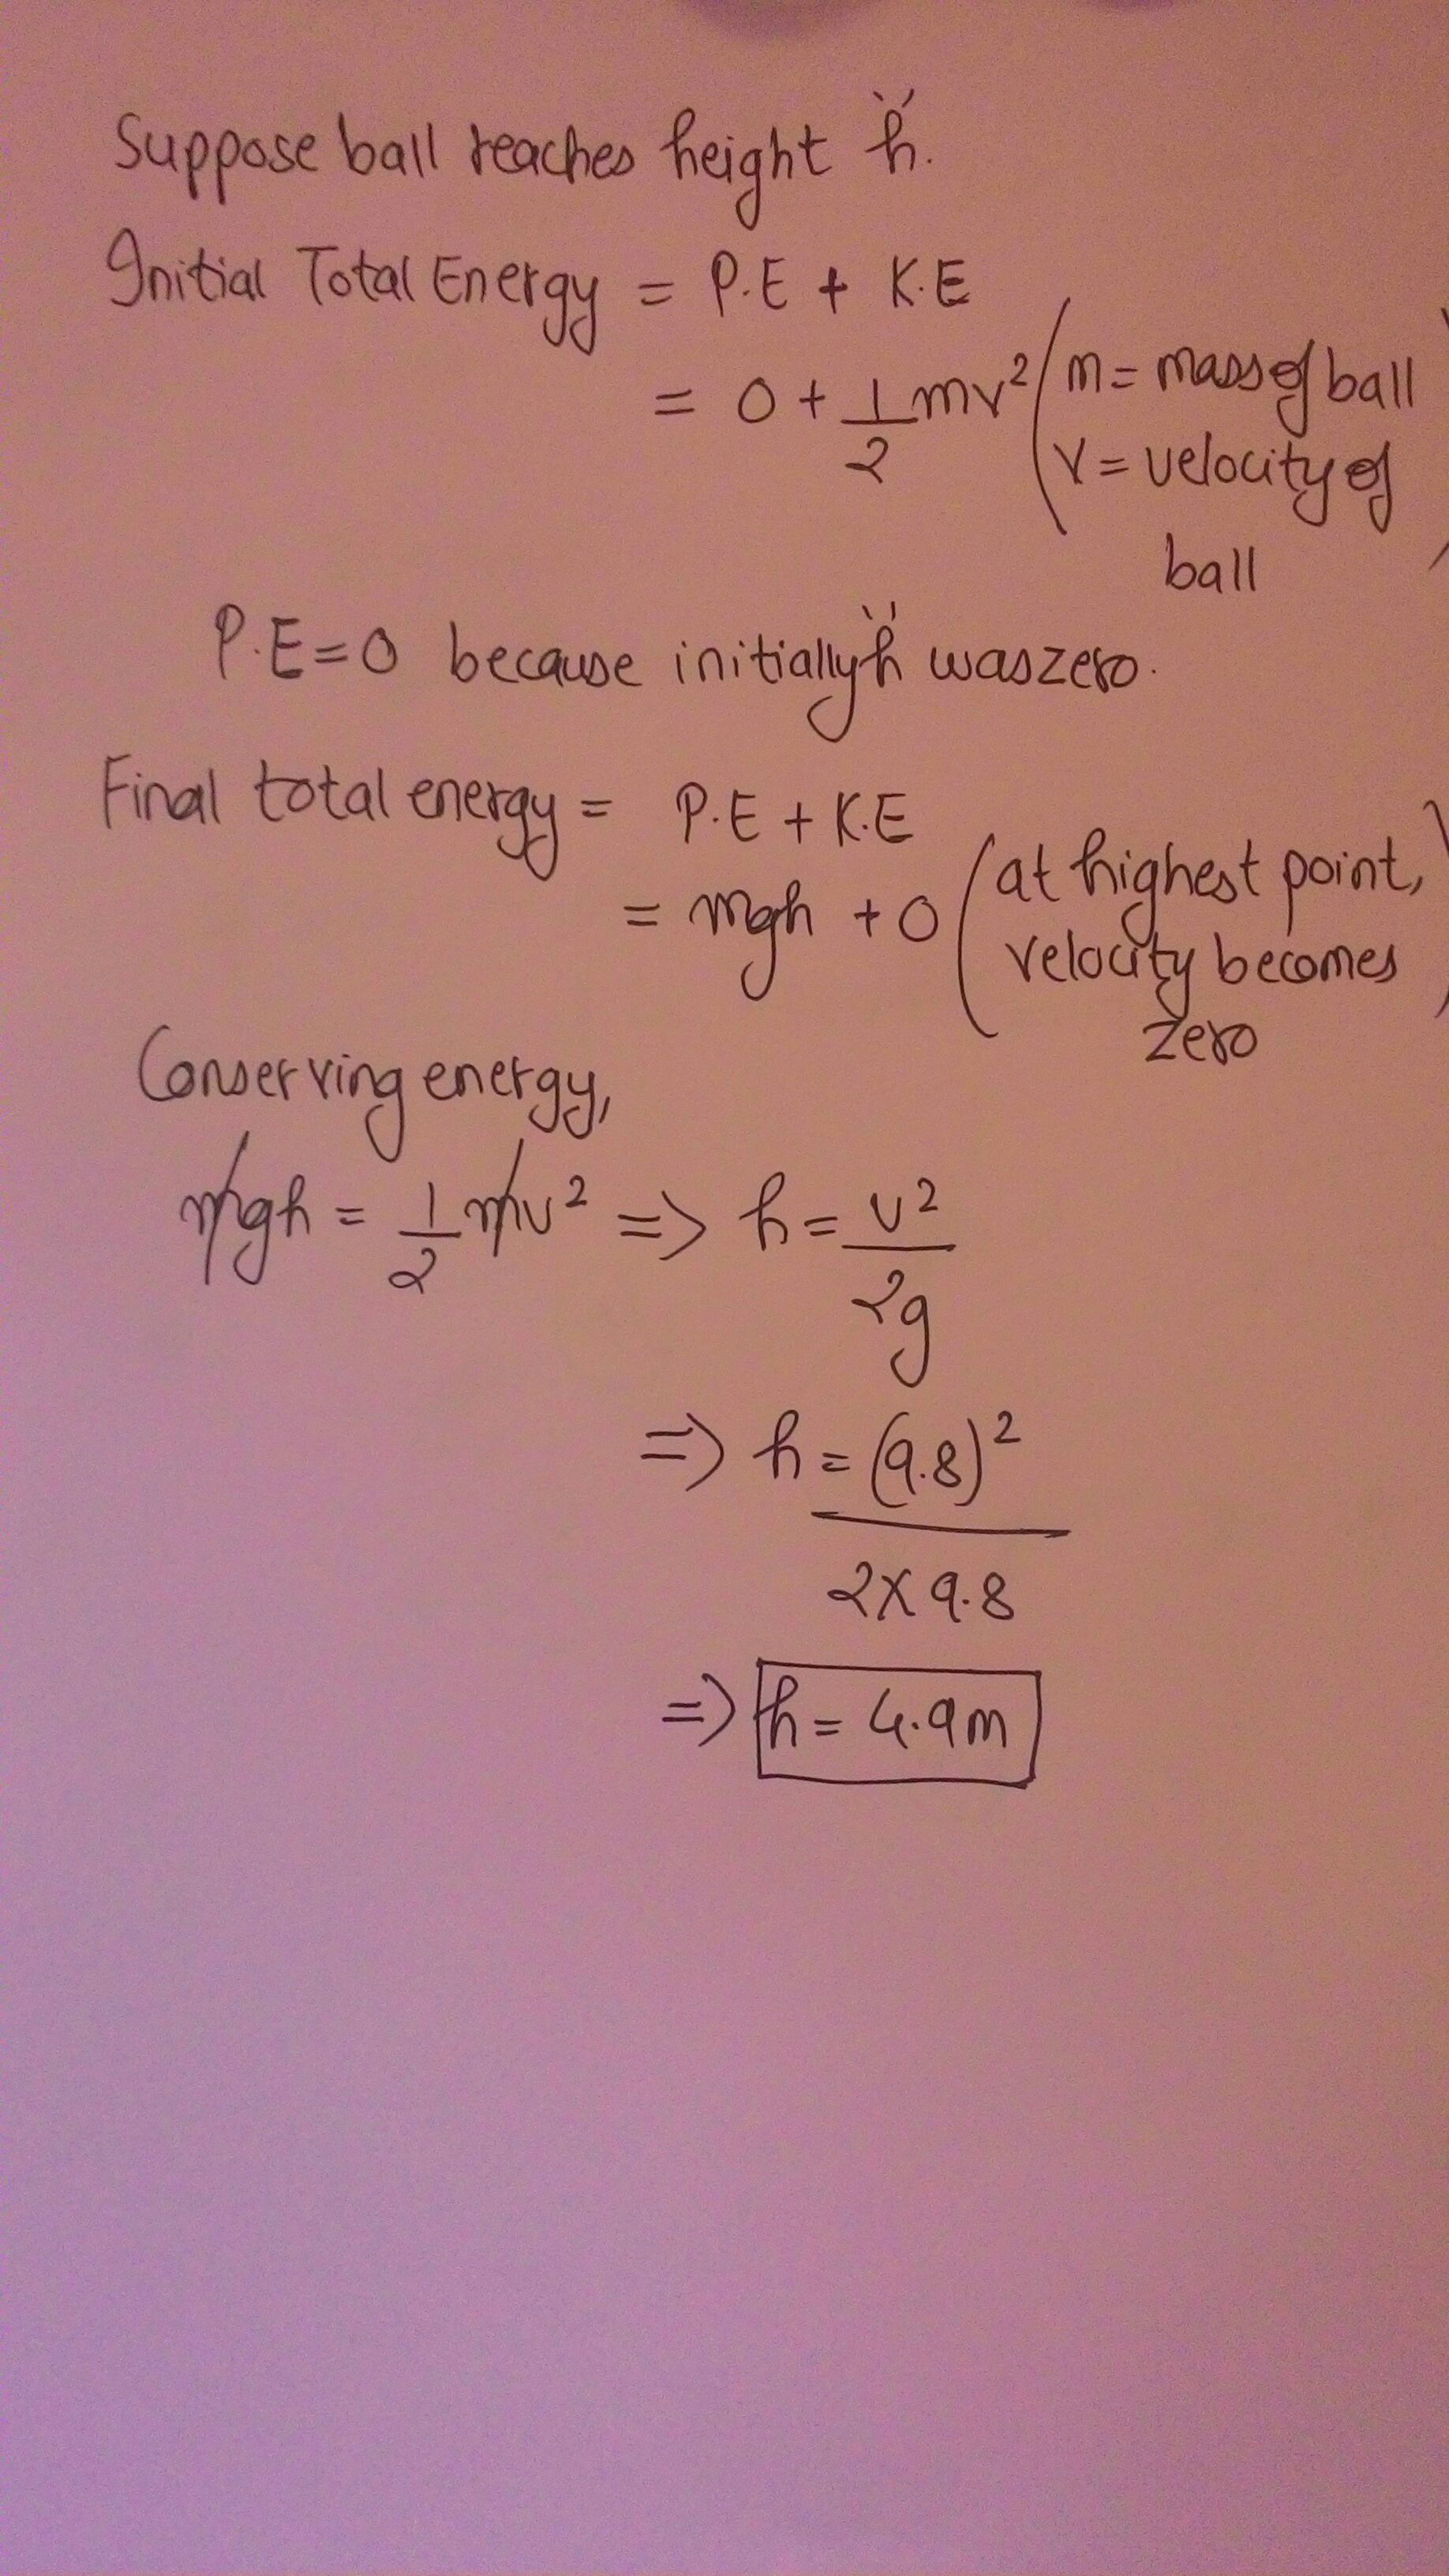 Suppose ball reaches height "h".
Initial Total Energy = P.E + K.E
= 0 + 1/2 mv² (m = mass of ball
v = velocity of
ball)
P.E = 0 because initially "h" was zero.
Final total energy = P.E + K.E
= mgh + 0 (at highest point,
velocity becomes
zero)
Conserving energy,
mgh = 1/2 mv² => h = v²/2g
=> h = (9.8)²/2×9.8
=> h = 4.9m